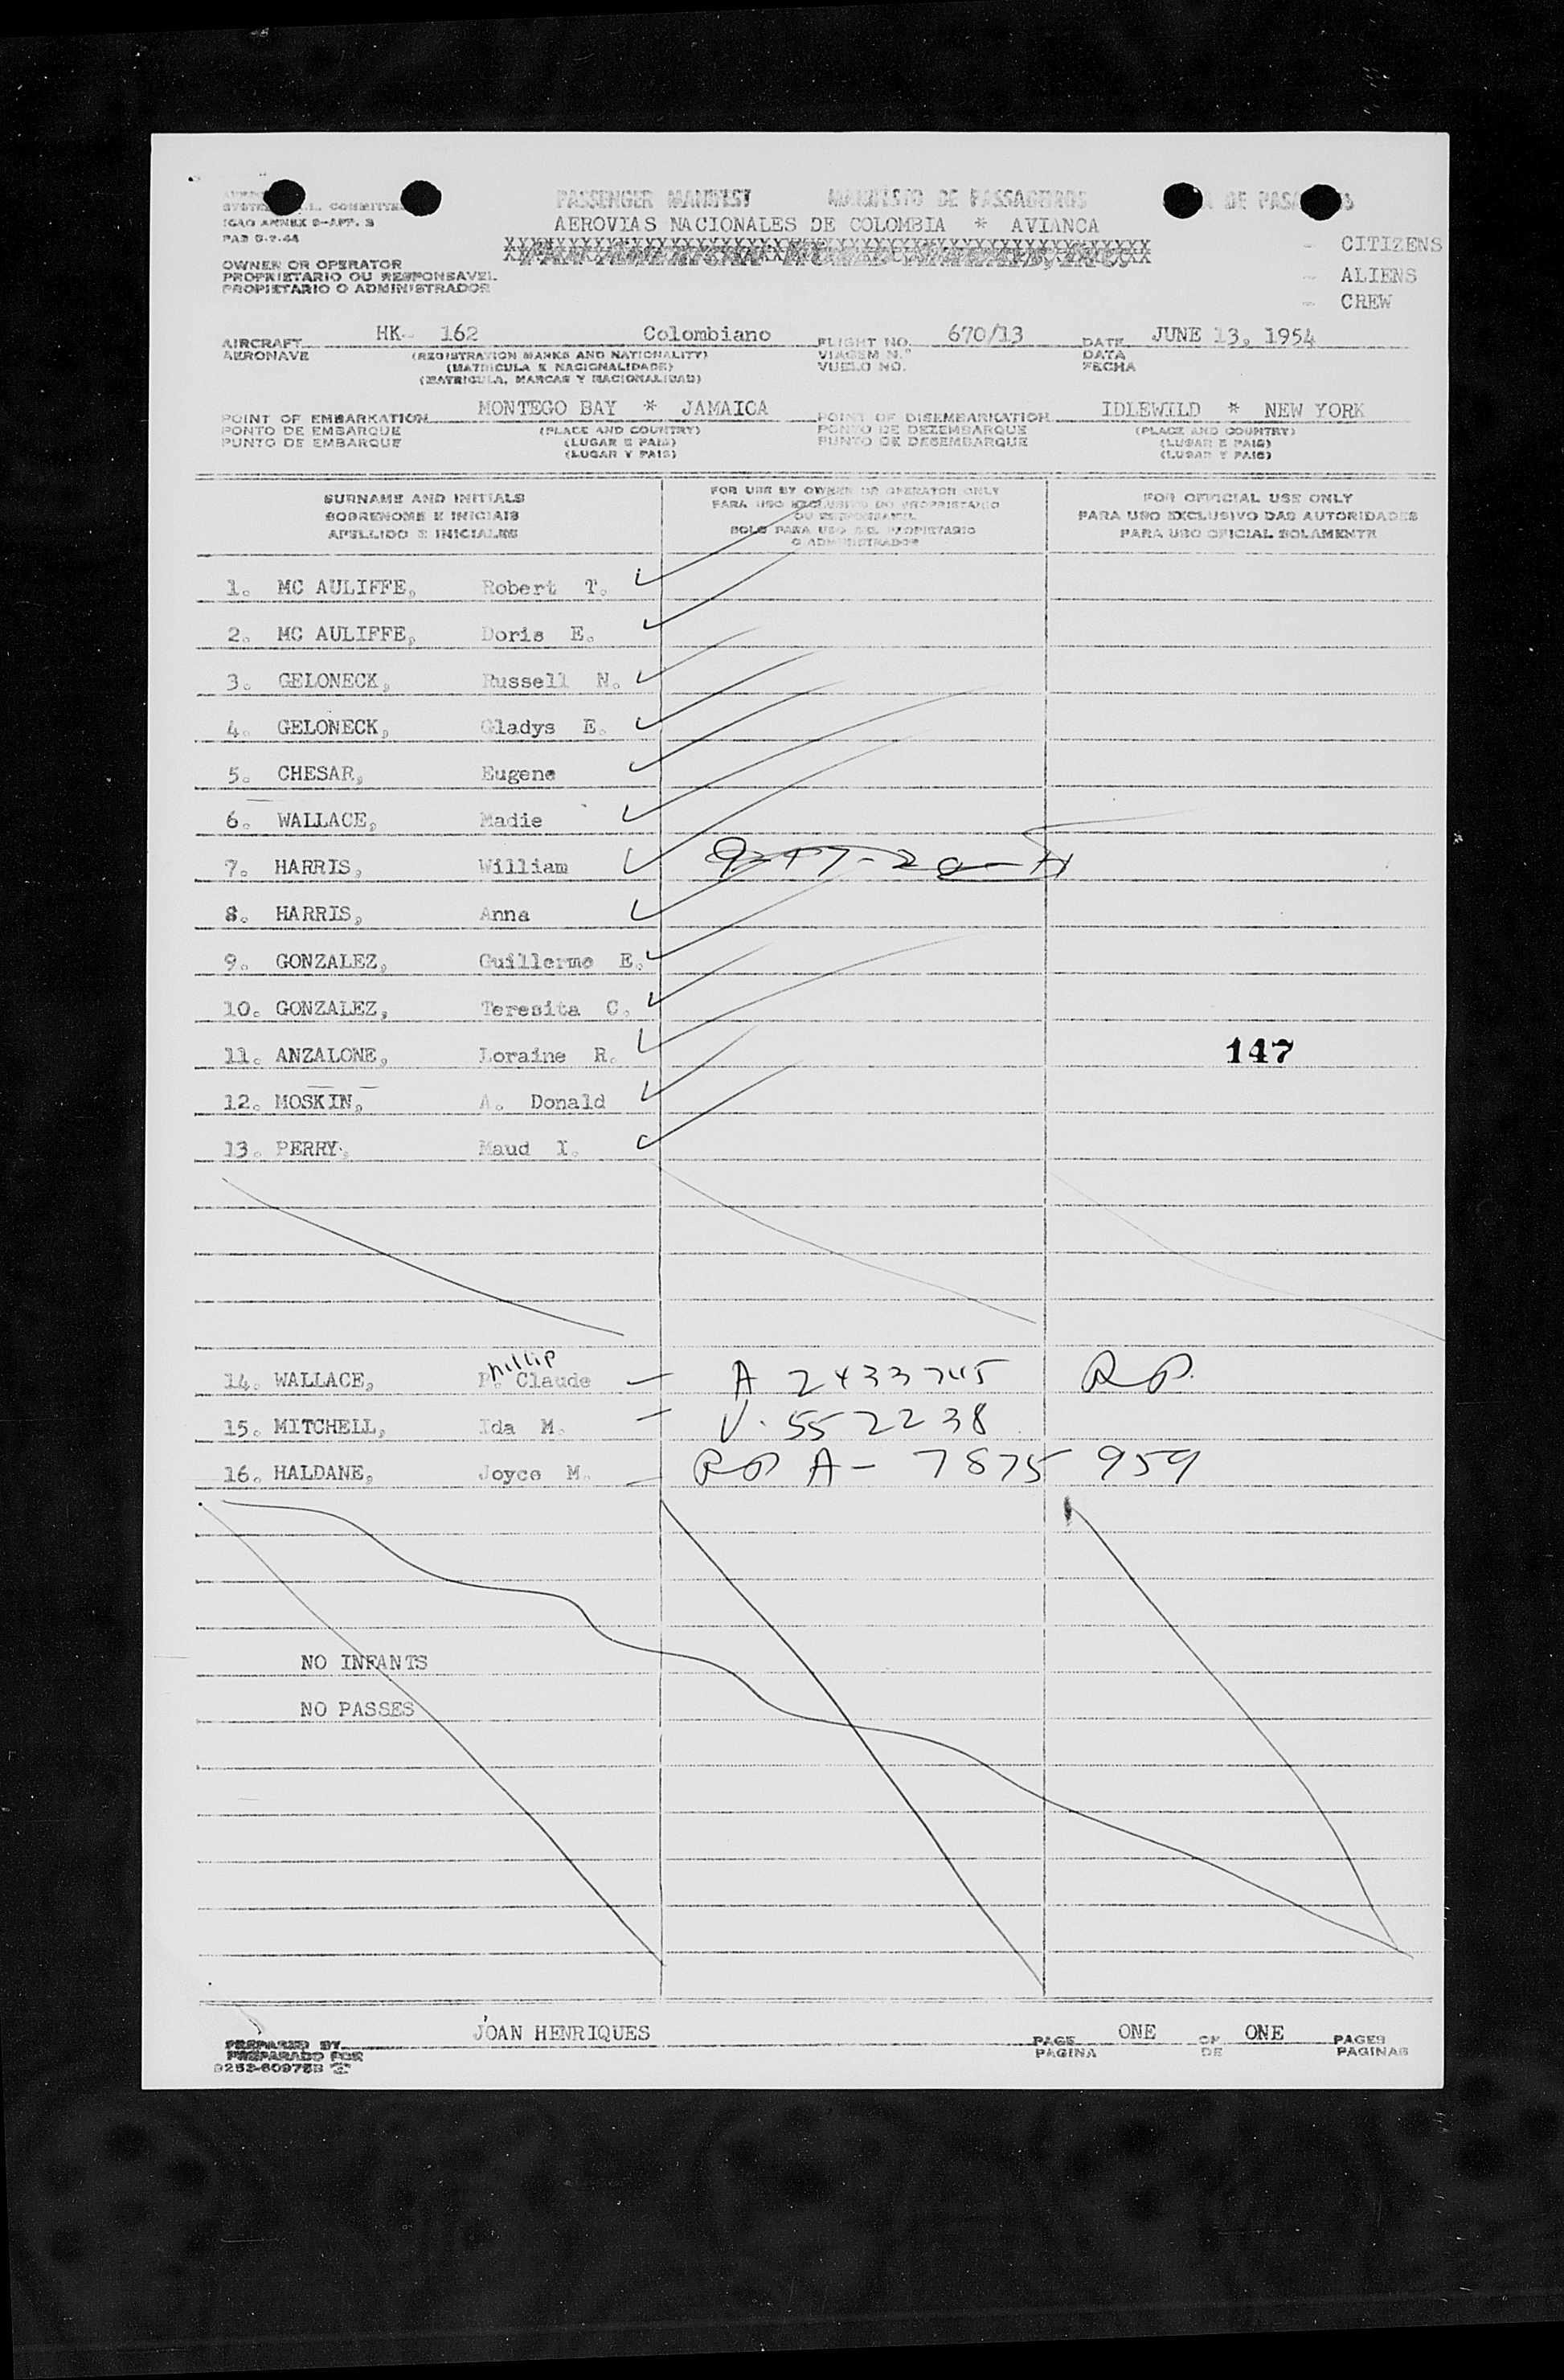 PASSENGER MANIFEST MANIFESTO DE PASSAGEIROS DE
SYSTEM COMMITTEE
ICAO ANNEX 9-APP. 3
AEROVIAS NACIONALES DE COLOMBIA * AVIANCA
- CITIZENS
OWNER OR OPERATOR
PROPRIETARIO OU RESPONSAVEL
PROPIETARIO O ADMINISTRADOR
- ALIENS
- CREW
AIRCRAFT HK- 162 Colombiano FLIGHT NO. 670/13 DATE JUNE 13, 1954
AERONAVE (REGISTRATION MARKS AND NATIONALITY) VIAGEM N.º DATA
(MATRICULA E NACIONALIDADE) VUELO NO. FECHA
(MATRICULA, MARCAS Y NACIONALIDAD)
POINT OF EMBARKATION MONTEGO BAY * JAMAICA POINT OF DISEMBARKATION IDLEWILD * NEW YORK
PONTO DE EMBARQUE (PLACE AND COUNTRY) PONTO DE DEZEMBARQUE (PLACE AND COUNTRY)
PUNTO DE EMBARQUE (LUGAR E PAIS) PUNTO DE DESEMBARQUE (LUGAR E PAIS)
(LUGAR Y PAIS) (LUGAR Y PAIS)
SURNAME AND INITIALS FOR USE BY OWNER OR OPERATOR ONLY FOR OFFICIAL USE ONLY
SOBRENOME E INICIAIS PARA USO EXCLUSIVO DO PROPRIETARIO PARA USO EXCLUSIVO DAS AUTORIDADES
OU RESPONSAVEL
APELLIDO E INICIALES SOLO PARA USO DEL PROPIETARIO PARA USO OFICIAL SOLAMENTE
O ADMINISTRADOR
1. MC AULIFFE, Robert T.
2. MC AULIFFE, Doris E.
3. GELONECK, Russell N.
4. GELONECK, Gladys E.
5. CHESAR, Eugene
6. WALLACE, Madie
7. HARRIS, William
8. HARRIS, Anna
9. GONZALEZ, Guillermo E.
10. GONZALEZ, Teresita C.
11. ANZALONE, Loraine R. 147
12. MOSKIN, A. Donald
13. PERRY, Maud I.
hillip
14. WALLACE, P. Claude A 2433745 RP.
15. MITCHELL, Ida M. V. 552238
16. HALDANE, Joyce M. RP A- 7875 959
NO INFANTS
NO PASSES
PREPARED BY JOAN HENRIQUES PAGE ONE OF ONE PAGES
PREPARADO POR PAGINA DE PAGINAS